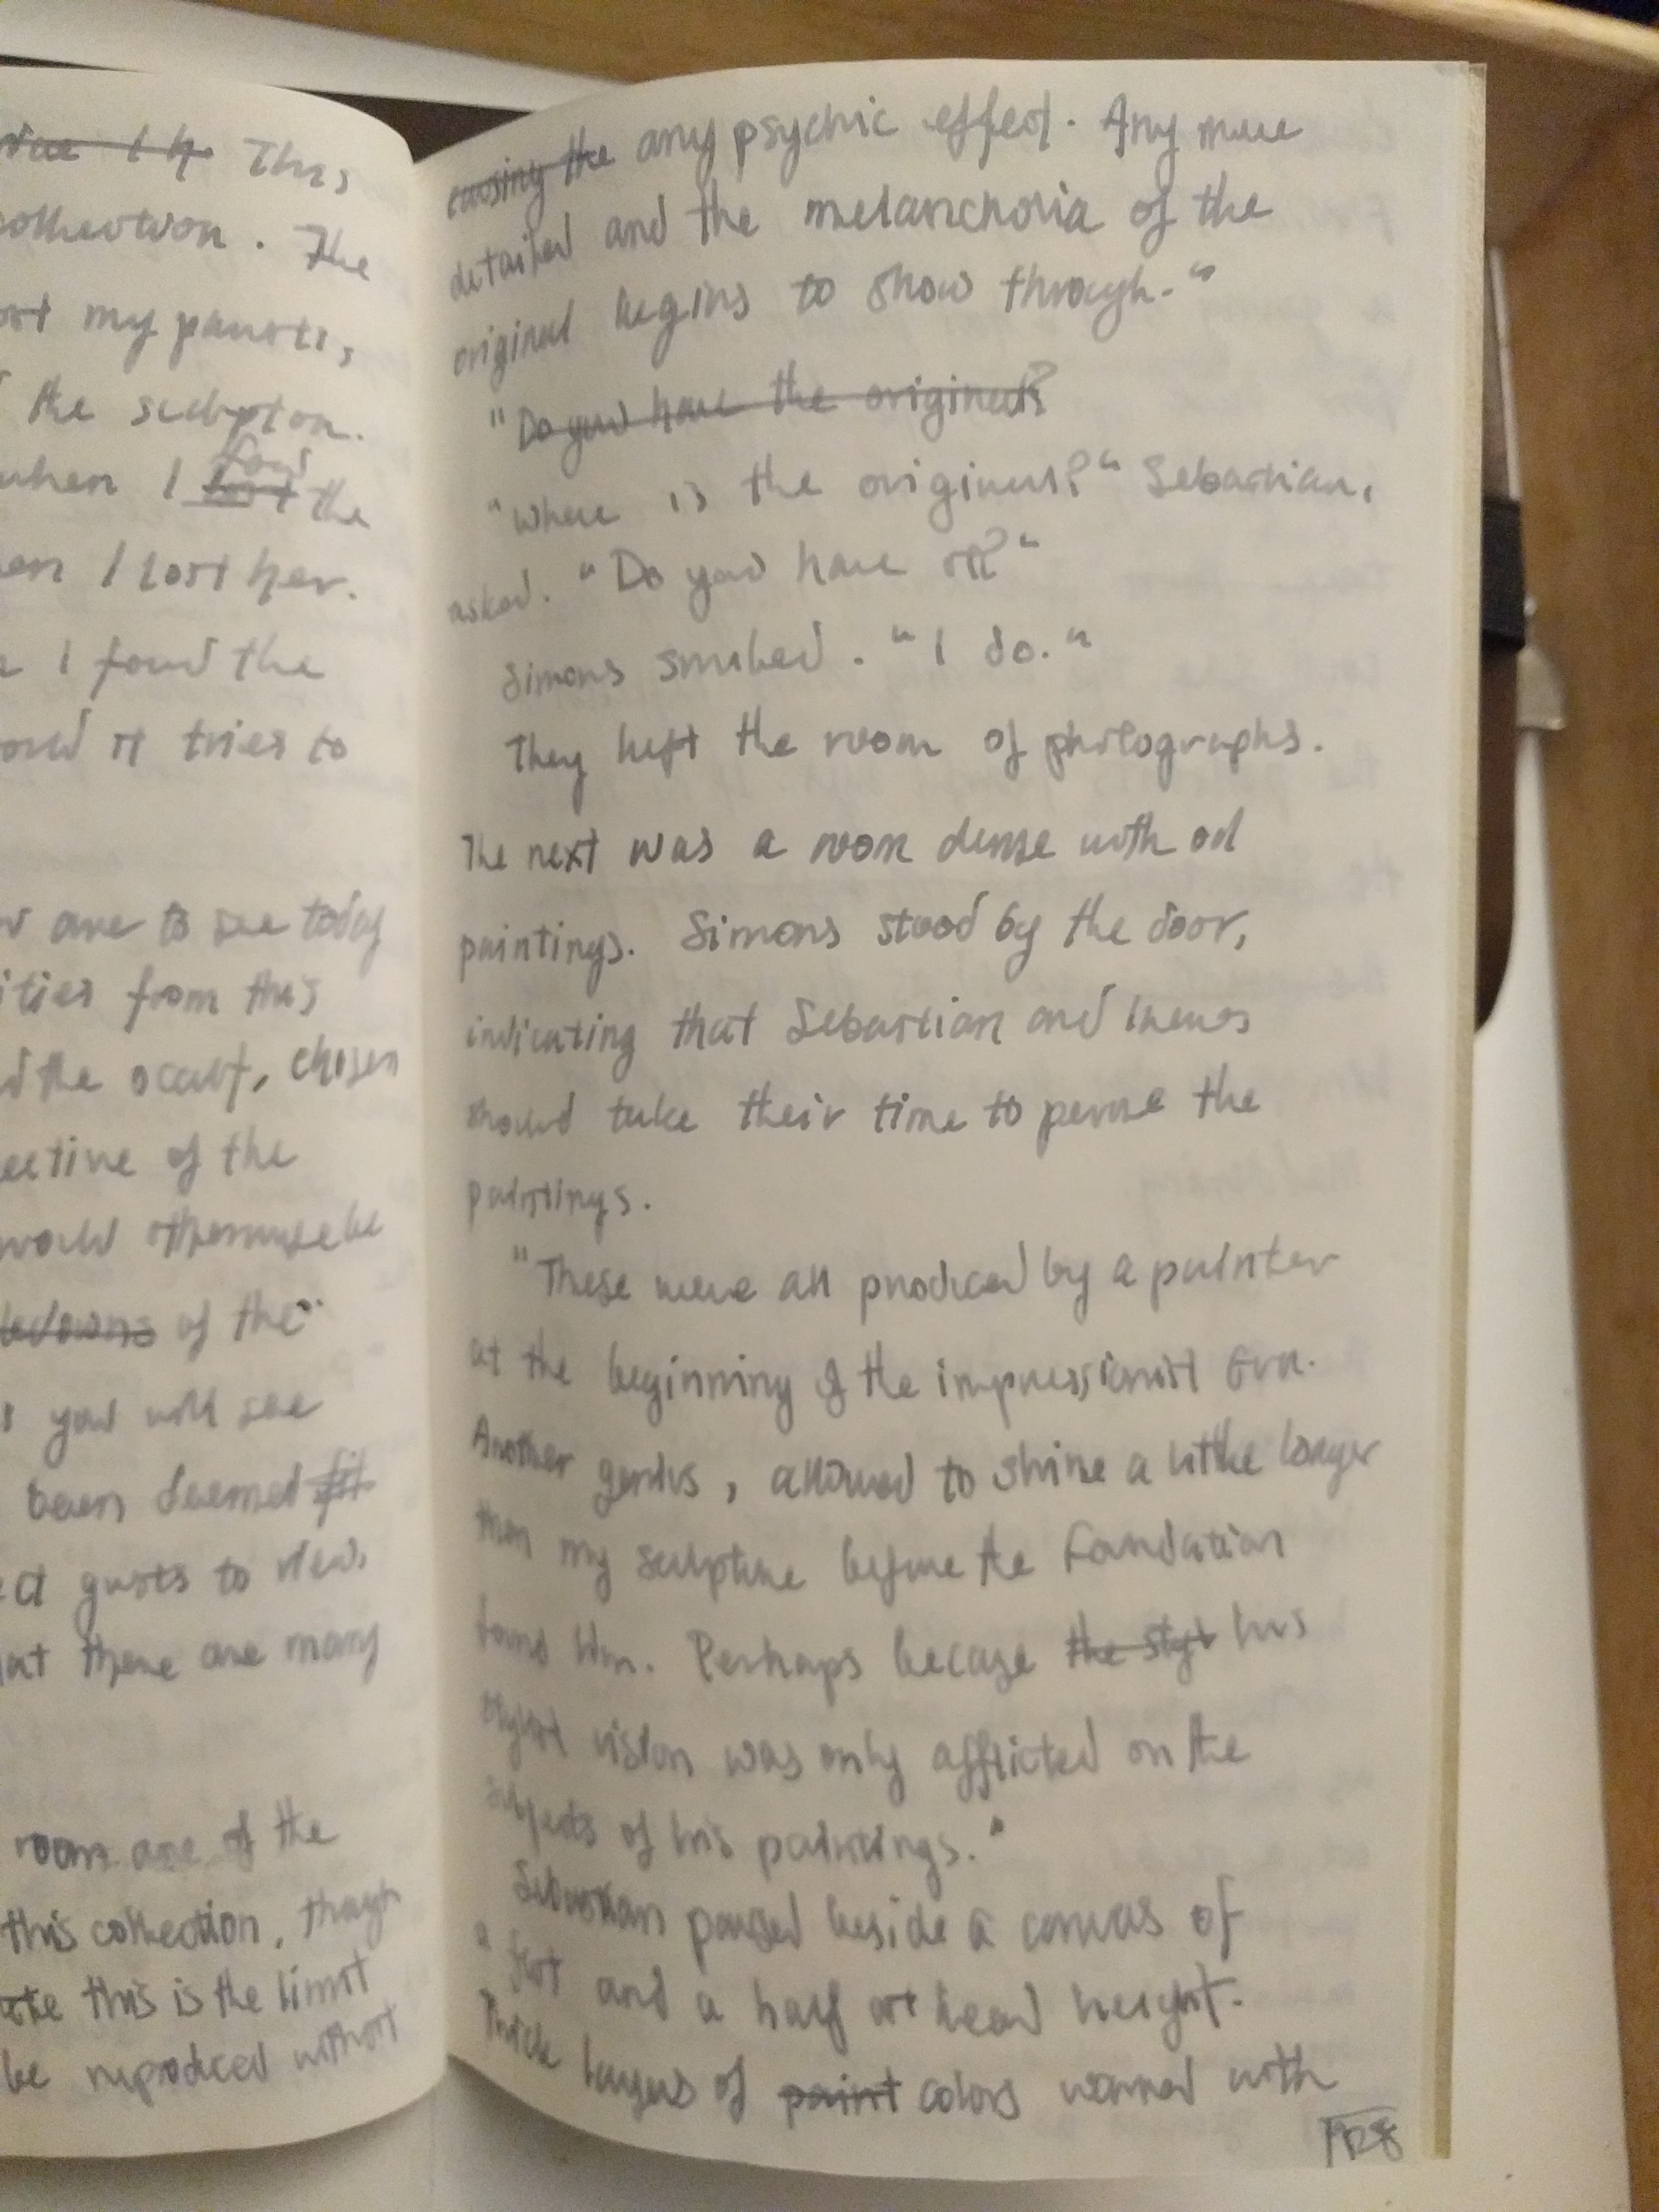 This
collection. The
my parents,
the sculptor.
when I
found
the
I lost her.
I found the
it tries to
are to see today
from this
the occult, chosen
of the
would otherwise be
of the
you will see
been deemed fit
guests to view.
there are many
room are of the
this collection, though
this is the limit
be reproduced without
causing the any psychic effect. Any more
detailed and the melancholia of the
original begins to show through."
"Do you have the original?
"Where is the original?" Sebastian,
asked. "Do you have it?"
Simons smiled. "I do."
They left the room of photographs.
The next was a room dense with oil
paintings. Simons stood by the door,
indicating that Sebastian and
should take their time to peruse the
paintings.
"These were all produced by a painter
at the beginning of the impressionist era.
Another genius, allowed to shine a little longer
than my sculptor before the Foundation
found him. Perhaps because the styl his
vision was only afflicted on the
subjects of his paintings."
Sebastian paused beside a canvas of
a foot and a half at head height.
Thick layers of paint colors warred with
128